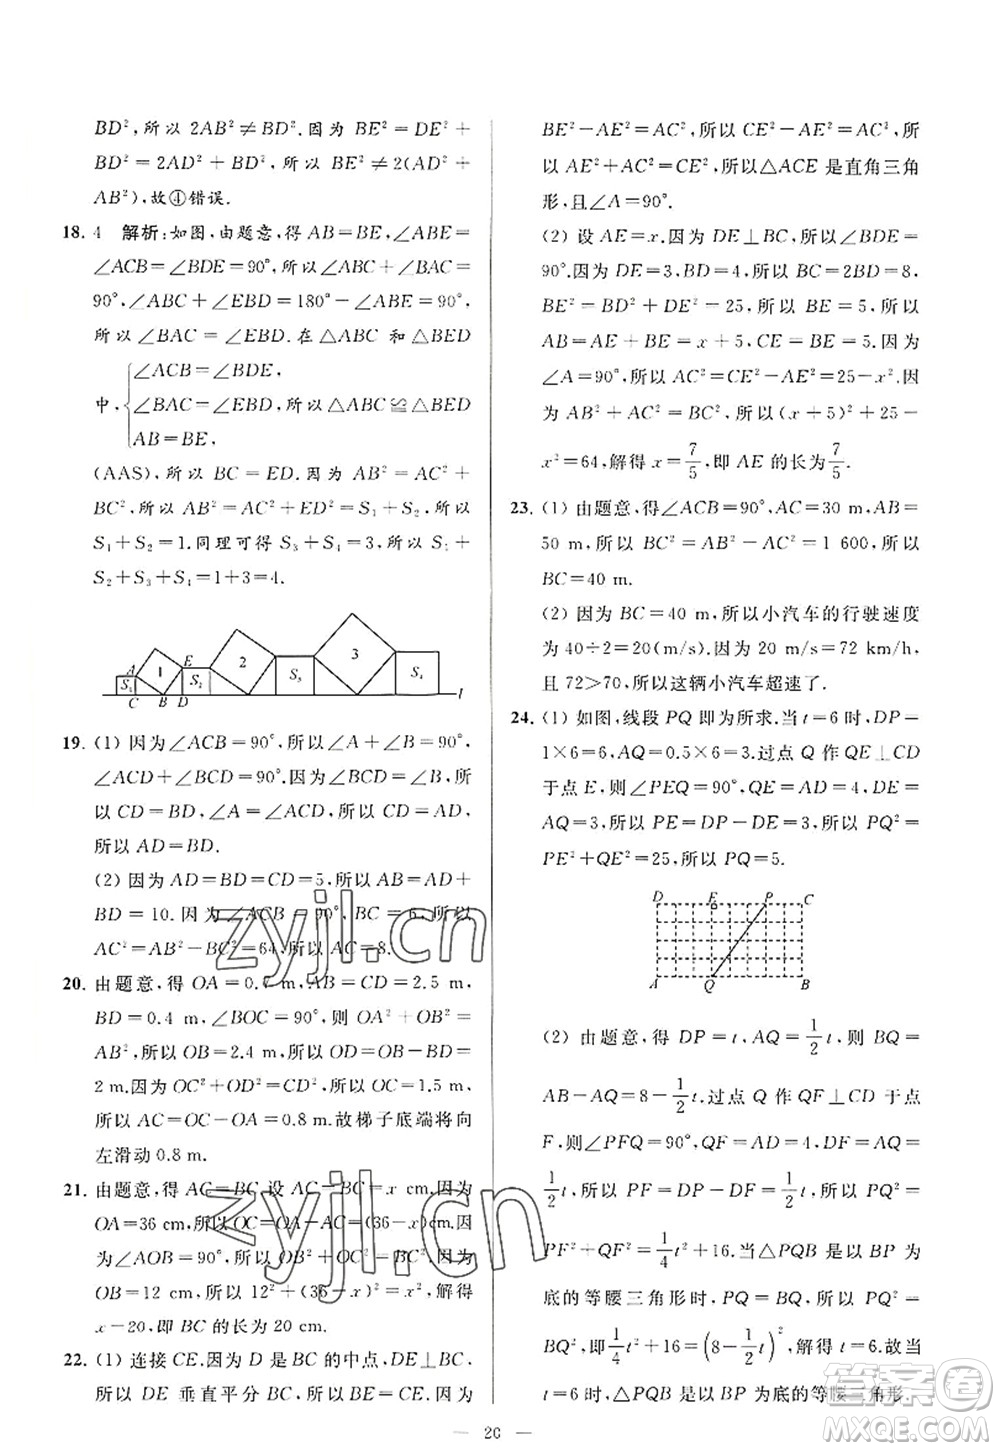 BD²,所以 2AB²≠BD².因为 BE²=DE²+
BD²=2AD²+BD²,所以 BE²≠2(AD²+
AB²),故④错误.
18. 4 解析:如图,由题意,得 AB=BE,∠ABE=
∠ACB=∠BDE=90°,所以∠ABC+∠BAC=
90°,∠ABC+∠EBD=180°-∠ABE=90°,
所以∠BAC=∠EBD.在△ABC 和△BED
∠ACB=∠BDE,
中,∠BAC=∠EBD,所以△ABC≌△BED
AB=BE,
(AAS),所以 BC=ED.因为 AB²=AC²+
BC²,所以 AB²=AC²+ED²=S₁+S₂,所以
S₁+S₂=1.同理可得 S₃+S₄=3,所以 S₁+
S₂+S₃+S₄=1+3=4.
A E 1 2 3 S₁ S₂ S₃ S₄
C B D l
19. (1) 因为∠ACB=90°,所以∠A+∠B=90°,
∠ACD+∠BCD=90°.因为∠BCD=∠B,所
以 CD=BD,∠A=∠ACD.所以 CD=AD,
所以 AD=BD.
(2) 因为 AD=BD=CD=5,所以 AB=AD+
BD=10.因为∠ACB=90°,BC=6,所以
AC²=AB²-BC²=64,所以 AC=8.
20. 由题意,得 OA=0.7 m,AB=CD=2.5 m,
BD=0.4 m,∠BOC=90°,则 OA²+OB²=
AB²,所以 OB=2.4 m,所以 OD=OB-BD=
2 m.因为 OC²+OD²=CD²,所以 OC=1.5 m,
所以 AC=OC-OA=0.8 m.故梯子底端将向
左滑动 0.8 m.
21. 由题意,得 AC=BC.设 AC=BC=x cm.因为
OA=36 cm,所以 OC=OA-AC=(36-x)cm.因
为∠AOB=90°,所以 OB²+OC²=BC².因为
OB=12 cm,所以 12²+(36-x)²=x²,解得
x=20,即 BC 的长为 20 cm.
22. (1) 连接 CE.因为 D 是 BC 的中点,DE⊥BC,
所以 DE 垂直平分 BC,所以 BE=CE.因为
BE²-AE²=AC²,所以 CE²-AE²=AC²,所
以 AE²+AC²=CE²,所以△ACE 是直角三角
形,且∠A=90°.
(2) 设 AE=x.因为 DE⊥BC,所以∠BDE=
90°.因为 DE=3,BD=4,所以 BC=2BD=8,
BE²=BD²+DE²=25,所以 BE=5,所以
AB=AE+BE=x+5,CE=BE=5.因为
∠A=90°,所以 AC²=CE²-AE²=25-x².因
为 AB²+AC²=BC²,所以(x+5)²+25-
x²=64,解得 x=7/5,即 AE 的长为7/5.
23. (1) 由题意,得∠ACB=90°,AC=30 m,AB=
50 m,所以 BC²=AB²-AC²=1 600,所以
BC=40 m.
(2) 因为 BC=40 m,所以小汽车的行驶速度
为 40÷2=20(m/s).因为 20 m/s=72 km/h,
且 72>70,所以这辆小汽车超速了.
24. (1) 如图,线段 PQ 即为所求.当 t=6 时,DP=
1×6=6,AQ=0.5×6=3.过点 Q 作 QE⊥CD
于点 E,则∠PEQ=90°,QE=AD=4,DE=
AQ=3,所以 PE=DP-DE=3,所以 PQ²=
PE²+QE²=25,所以 PQ=5.
D E P C
A Q B
(2) 由题意,得 DP=t,AQ=1/2t,则 BQ=
AB-AQ=8-1/2t.过点 Q 作 QF⊥CD 于点
F,则∠PFQ=90°,QF=AD=4,DF=AQ=
1/2t,所以 PF=DP-DF=1/2t,所以 PQ²=
PF²+QF²=1/4t²+16.当△PQB 是以 BP 为
底的等腰三角形时,PQ=BQ,所以 PQ²=
BQ²,即1/4t²+16=(8-1/2t)²,解得 t=6.故当
t=6 时,△PQB 是以 BP 为底的等腰三角形.
— 20 —
zyjl.cn
zyjl.cn
答案圈
MXQE.COM